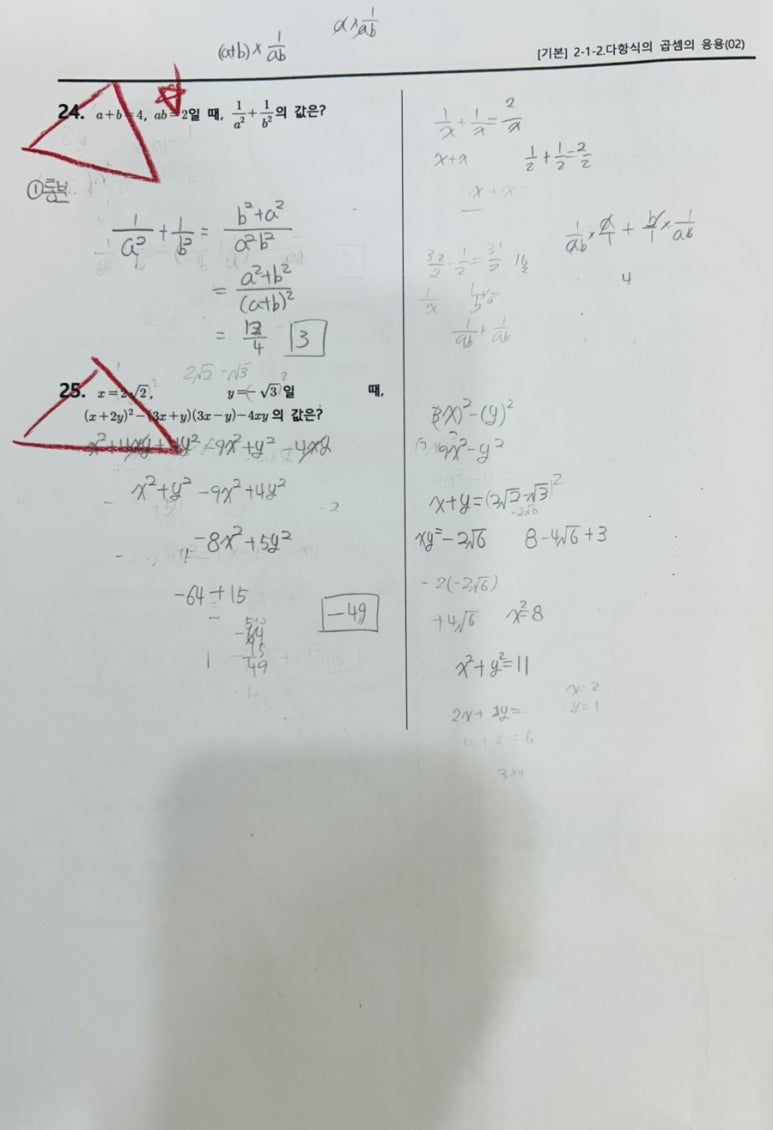 (a+b) × 1/ab
a × 1/ab
[기본] 2-1-2.다항식의 곱셈의 응용(02)
24. a+b=4, ab=2일 때, 1/a² + 1/b² 의 값은?
①통분
1/a² + 1/b² = (b²+a²)/(a²b²)
= (a²+b²)/(a+b)²
= 12/4 3
1/x + 1/x = 2/x
x+x
1/2 + 1/2 = 2/2
x+x=
1/ab × a/1 + b/1 × 1/ab
32/2 - 1/2 = 31/2
4
1/x
1/ab + 1/ab
25. x=2√2, y=-√3일 때,
(x+2y)²-(3x+y)(3x-y)-4xy의 값은?
2√2 -√3
x²+4xy+4y² -9x²+y² -4xy
x²+y² -9x²+4y²
-8x²+5y²
-64+15
-64
15
49
-49
(3x)²-(y)²
9x²-y²
x+y=(2√2-√3)²
-2√6
xy=-2√6 8-4√6+3
-2(-2√6)
+4√6 x²=8
x²+y²=11
x=2
2x+2y= y=1
4+2=6
3×4